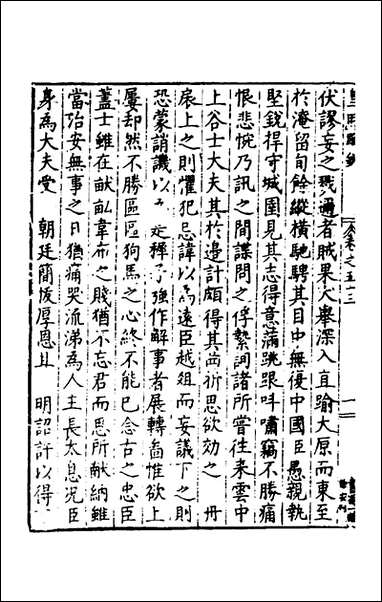 卷之五十三 一
伏謬妄之戮邇者賊果大舉深入直踰大原而東至
於滹留旬餘縱橫馳騁其目中無復中國臣愚親執
堅銳捍守城圍見其志得意滿跳踉叫嘯竊不勝痛
恨悲乃訊之間諜問之俘縶詞諸所嘗往来雲中
上谷士大夫其於邊計頗得其析思欲効之 丹
扆上之則懼犯忌諱以爲遠臣越俎而妄議下之則
恐蒙誚譏以爲強作解事者展轉啚惟欲上
屢却然不勝區區狗馬之心終不能已念古之忠臣
藎士雖在畎畝韋布之賤猶不忘君而思所献納雖
當治安無事之日猶痛哭流涕爲人主長太息况臣
身爲大夫受 朝廷簡拔厚恩且 明詔許以得